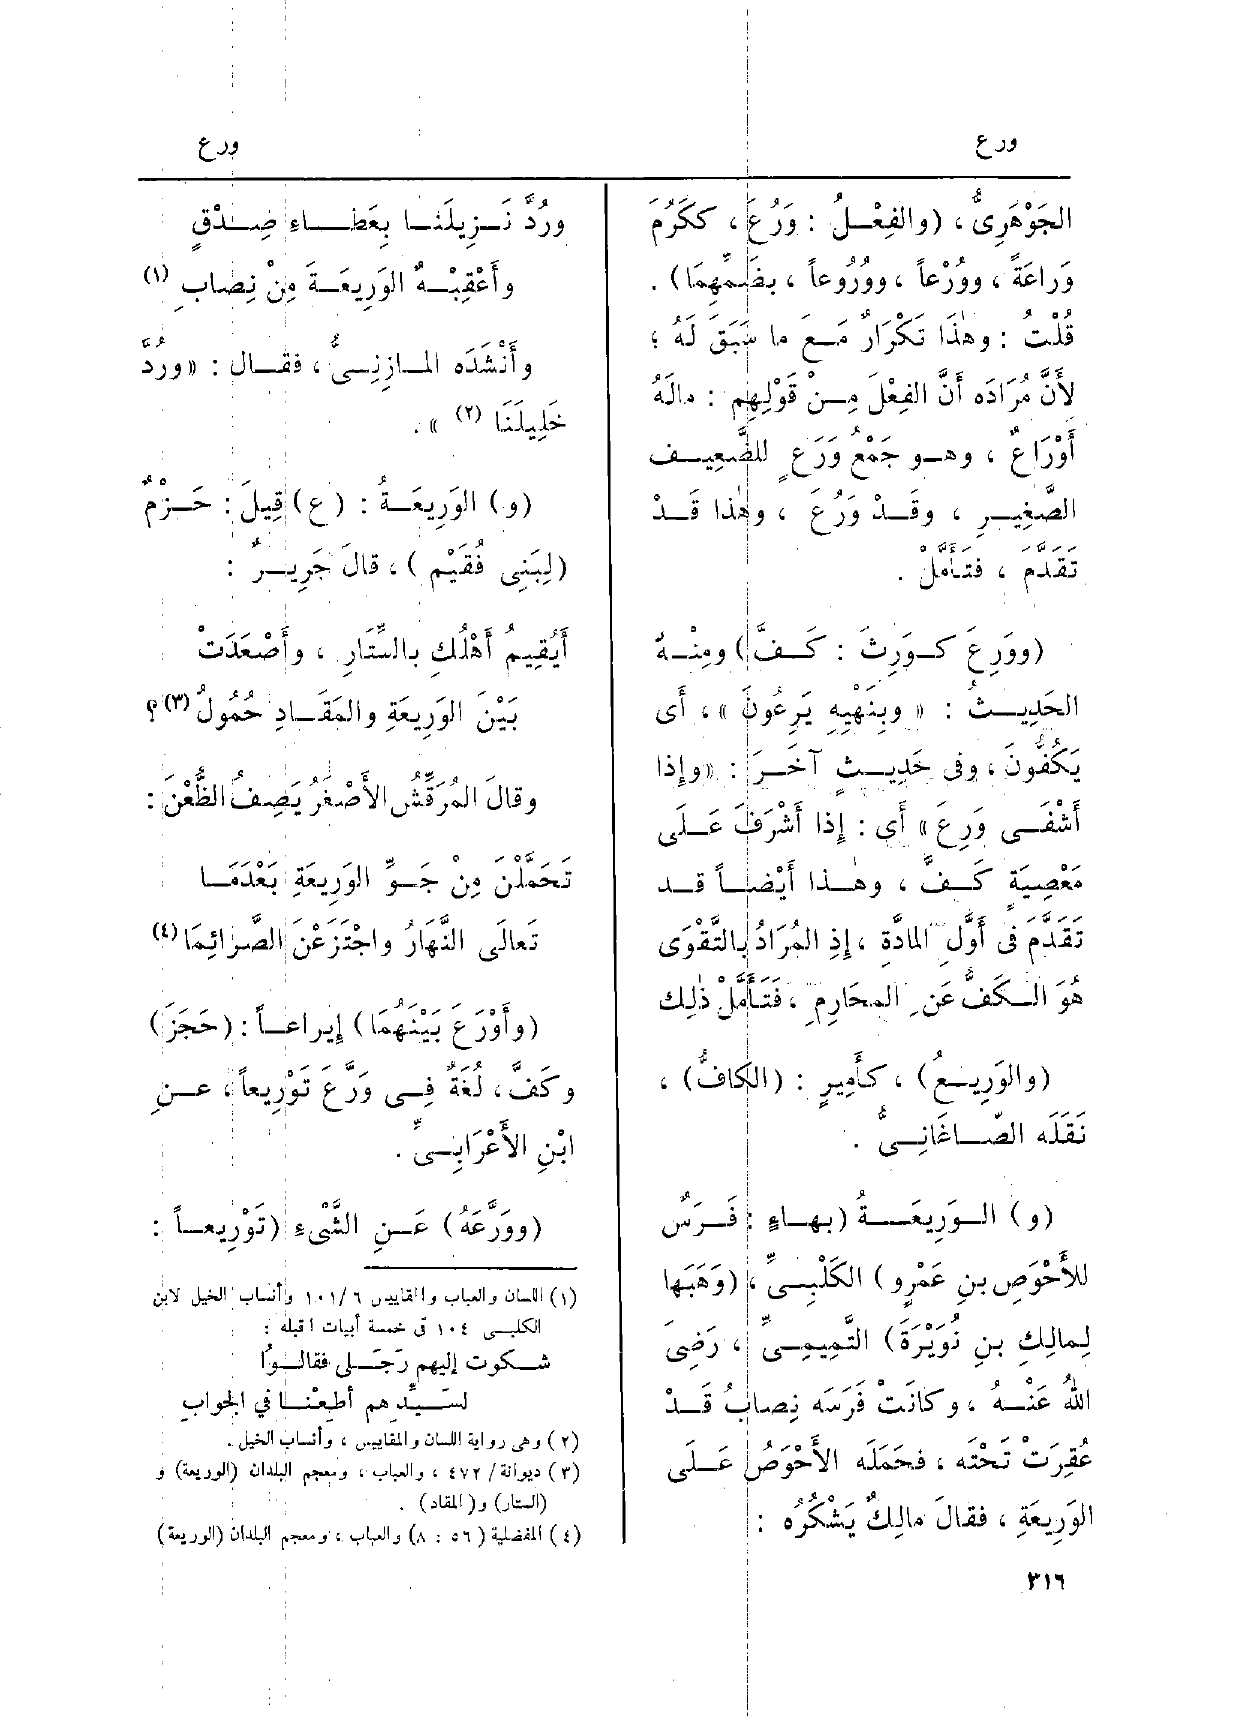 ورع
ورع
الجَوْهَرِىُّ ، (والفِعْلُ : وَرُعَ ، ككَرُمَ
وَرَاعَةً ، ووُرْعاً ، ووُرُوعاً ، بضَمِّهِمَا) .
قُلْتُ : وهٰذا تَكْرَارٌ مَعَ ما سَبَقَ لَهُ ؛
لأَنَّ مُرَادَه أَنَّ الفِعْلَ مِنْ قَوْلِهِم : مالَهُ
أَوْرَاعٌ ، وهو جَمْعُ وَرَعٍ للضَّعِيف
الصَّغِيرِ ، وقَدْ وَرُعَ ، وهٰذا قَدْ
تَقَدَّمَ ، فتَأَمَّلْ .
(ووَرِعَ كوَرِثَ : كَفَّ) ومِنْهُ
الحَدِيثُ : « وبِنَهْيِه يَرِعُونَ » ، أَى
يَكُفُّونَ ، وفى حَدِيثٍ آخَرَ : «وإذا
أَشْفَى وَرِعَ » أَى : إذا أَشْرَفَ عَلَى
مَعْصِيَةٍ كَفَّ ، وهٰذا أَيْضاً قد
تَقَدَّمَ فى أَوَّلِ المادّةِ ، إِذِ المُرَادُ بالتَّقْوَى
هُوَ الكَفُّ عَنِ المحَارِمِ ، فَتَأَمَّلْ ذٰلِك
(والوَرِيعُ) ، كأَمِيرٍ : (الكافُّ) ،
نَقَلَه الصّاغَانِىُّ .
(و) الوَرِيعَةُ (بهاءٍ : فَرَسٌ
للأَحْوَصِ بنِ عَمْرٍو) الكَلْبِىِّ ، (وَهَبَها
لِمالِكِ بنِ نُوَيْرَةَ) التَّمِيمِىِّ ، رَضِىَ
اللهُ عَنْهُ ، وكانَتْ فَرَسَه نِصابُ قَدْ
عُقِرَتْ تَحْتَه ، فحَمَلَه الأَحْوَصُ عَلَى
الوَرِيعَةِ ، فقالَ مالِكٌ يَشْكُرُه :
ورُدَّ نَزِيلَنا بِعَطاءِ صِدْقٍ
وأَعْقِبْهُ الوَرِيعَةَ مِنْ نِصابِ (١)
وأَنْشَدَه المازِنِىُّ ، فقال : «ورُدَّ
خَلِيلَنَا (٢) » .
(و) الوَرِيعَةُ : (ع) قِيلَ : حَزْمٌ
(لِبَنِى فُقَيْمٍ) ، قالَ جَرِيرٌ :
أَيُقِيمُ أَهْلُكِ بالسِّتَارِ ، وأَصْعَدَتْ
بَيْنَ الوَرِيعَةِ والمَقَادِ حُمُولُ (٣) ؟
وقالَ المُرَقِّشُ الأَصْغَرُ يَصِفُ الظُّعْنَ :
تَحَمَّلْنَ مِنْ جَوِّ الوَرِيعَةِ بَعْدَمَا
تَعالَى النَّهَارُ واجْتَزَعْنَ الصَّرائِمَا (٤)
(وأَوْرَعَ بَيْنَهُمَا) إيراعاً : (حَجَزَ)
وكَفَّ ، لُغَةٌ فِى وَرَّعَ تَوْرِيعاً ، عنِ
ابْنِ الأَعْرَابِىِّ .
(ووَرَّعَهُ) عَنِ الشَّىْءِ (تَوْرِيعاً :
(١) اللسان والعباب والمقاييس ١٠١/٦ وأنساب الخيل لابن
الكلبى ١٠٤ فى خمسة أبيات اقبله :
شكوت إليهم رَجَلى فقالوا
لسَيِّدهم أطِعْنا في الجوابِ
(٢) وهى رواية اللسان والمقاييس ، وأنساب الخيل .
(٣) ديوانة / ٤٧٢ ، والعباب ، ومعجم البلدان (الوريعة) و
(الستار) و(المقاد) .
(٤) المفضلية (٥٦ : ٨) والعباب ، ومعجم البلدان (الوريعة)
٣١٦